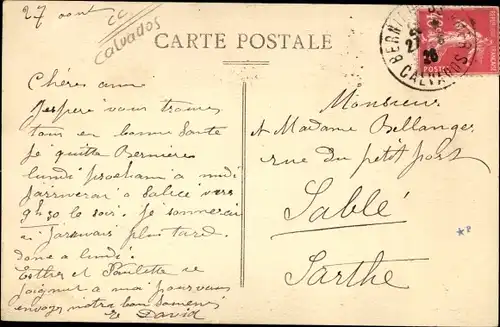 27 aout
CC
Calvados
CARTE POSTALE
BERNIÈRES
27
26
CALVADOS
POSTES
Chères amis
J'espère vous trouver
tous en bonne Santé
Je quitte Bernieres
lundi prochain a midi
J'arriverai a Sablée vers
9h30 le soir. Je sonnerai
si j'arrivais plus tard.
donc a lundi.
Esther et Paulette se
joignent a moi pour vous
envoyer notre bon souvenir
E David
Monsieur
et Madame Bellanger
rue du petit port
Sablé
Sarthe